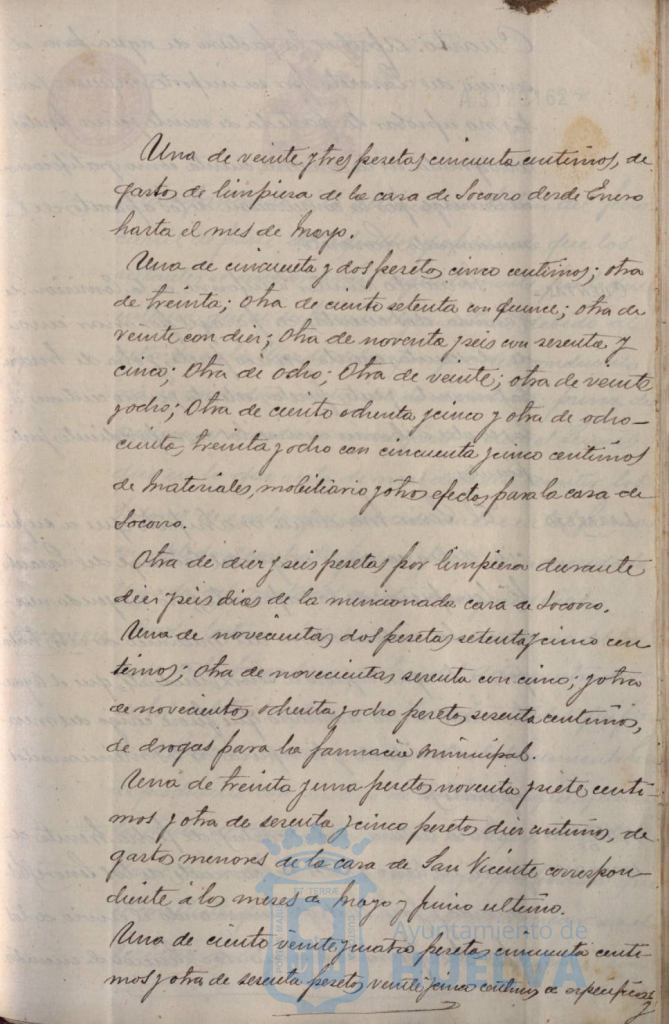 Una de veinte y tres pesetas cincuenta centimos, de
gastos de limpieza de la casa de Socorro desde Enero
hasta el mes de Mayo.
Una de cincuenta y dos pesetas cinco centimos; otra
de treinta; otra de ciento setenta con quince; otra de
veinte con diez; otra de noventa y seis con sesenta y
cinco; otra de ocho; otra de veinte; otra de veinte
y ocho; otra de ciento ochenta y cinco y otra de ocho-
cientas treinta y ocho con cincuenta y cinco centimos
de materiales, mobiliario y otros efectos para la casa de
Socorro.
Otra de diez y seis pesetas por limpieza durante
diez y seis dias de la mencionada casa de Socorro.
Una de novecientas dos pesetas setenta y cinco cen
timos; otra de novecientas sesenta con cinco; y otra
de novecientos ochenta y ocho pesetas sesenta centimos,
de drogas para la farmacia municipal.
Una de treinta y una pesetas noventa y siete centi-
mos y otra de sesenta y cinco pesetas diez centimos, de
gastos menores de la casa de San Vicente correspon-
diente á los meses de Mayo y Junio ultimo.
Una de ciento veinte y cuatro pesetas cincuenta centi-
mos y otra de sesenta pesetas veinte y cinco centimos de especificos
Ayuntamiento de
HUELVA